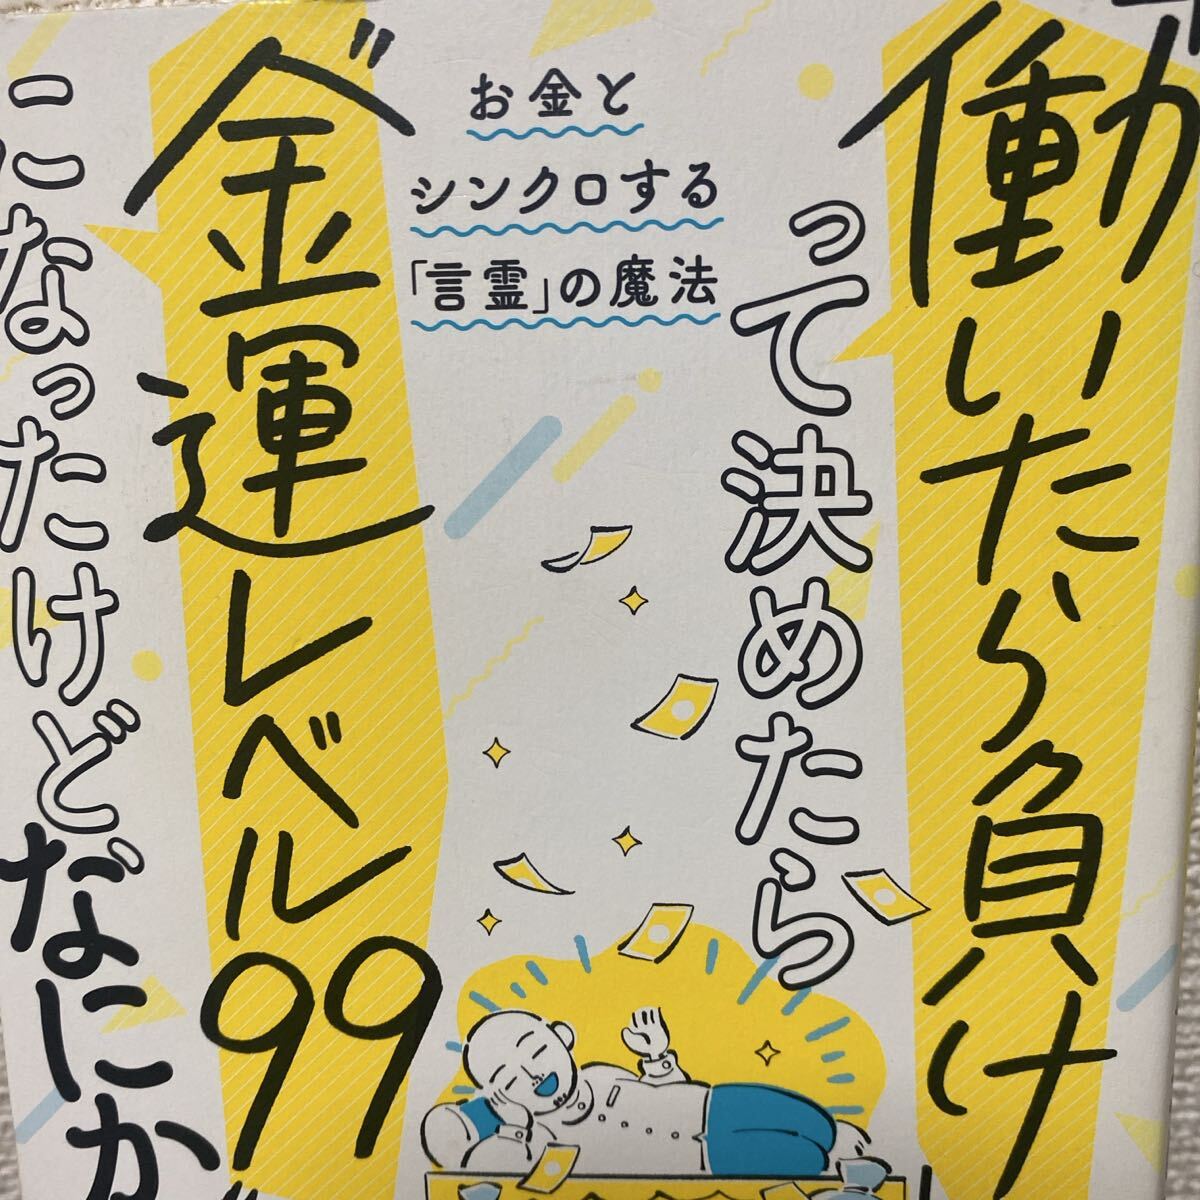 「働いたら負け」
って決めたら
お金と
シンクロする
「言霊」の魔法
金運レベル99
になったけどなにか